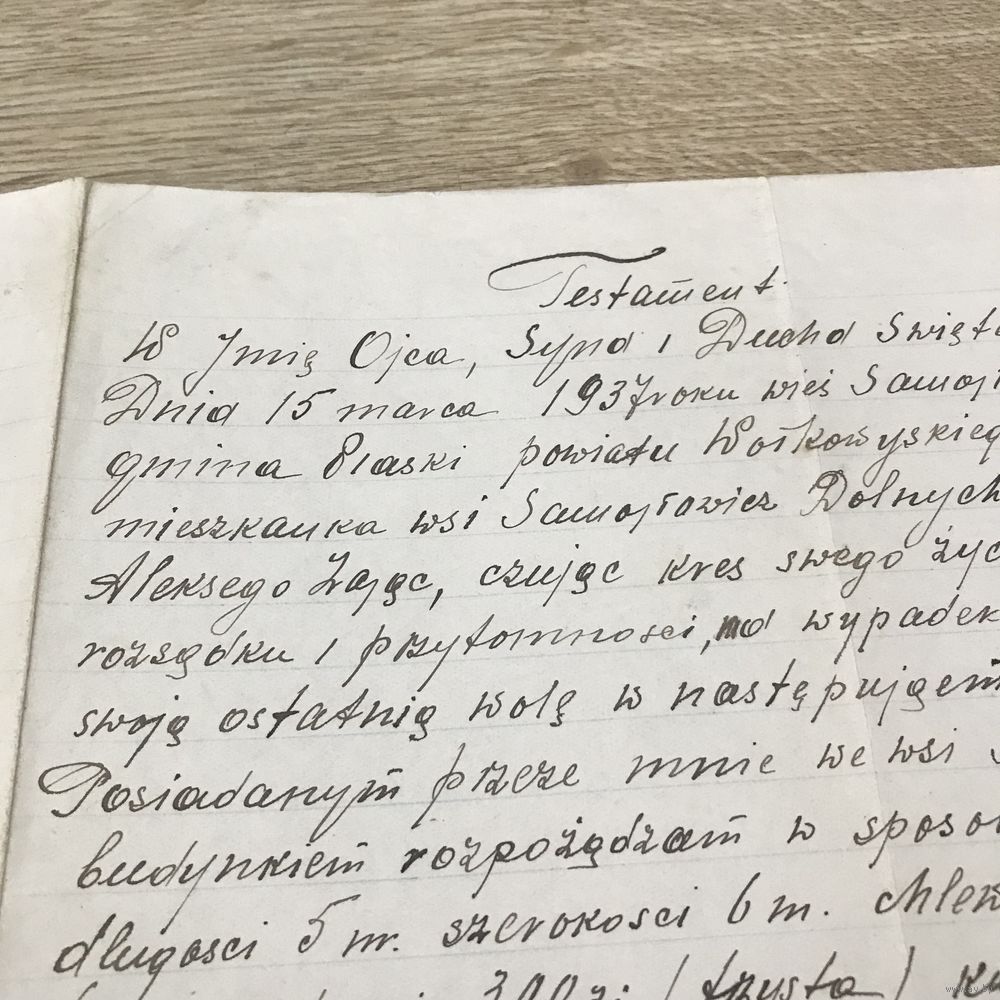 Testament.
W Jmię Ojca, Syna i Ducha Święt
Dnia 15 marca 1937 roku wieś Samoj
gmina Piaski powiatu Wołkowyskieg
mieszkanka wsi Samojłowicz Dolnych
Aleksego Zając, czując kres swego życ
rozsądku i przytomnosci, na wypadek
swoją ostatnią wolę w następującem
Posiadanym przeze mnie we wsi S
budynkiem rozpożądzam w sposo
długosci 5 m. szerokosci 6 m. chlew
300 zł / trzysta /
www.av.by